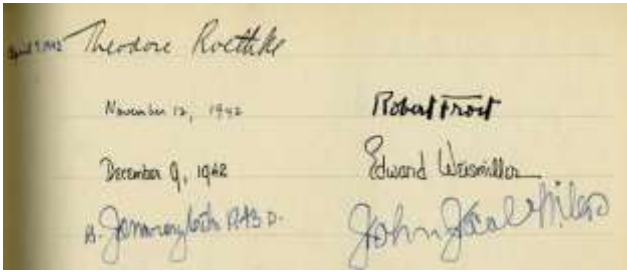 April 7, 1942 Theodore Roethke
November 12, 1942 Robert Frost
December 9, 1942 Edward Weismiller
John Jacob Niles